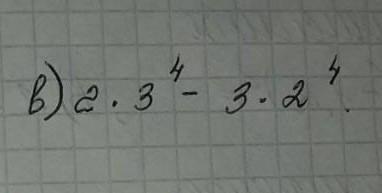 в) 2 · 3⁴ - 3 · 2⁴.